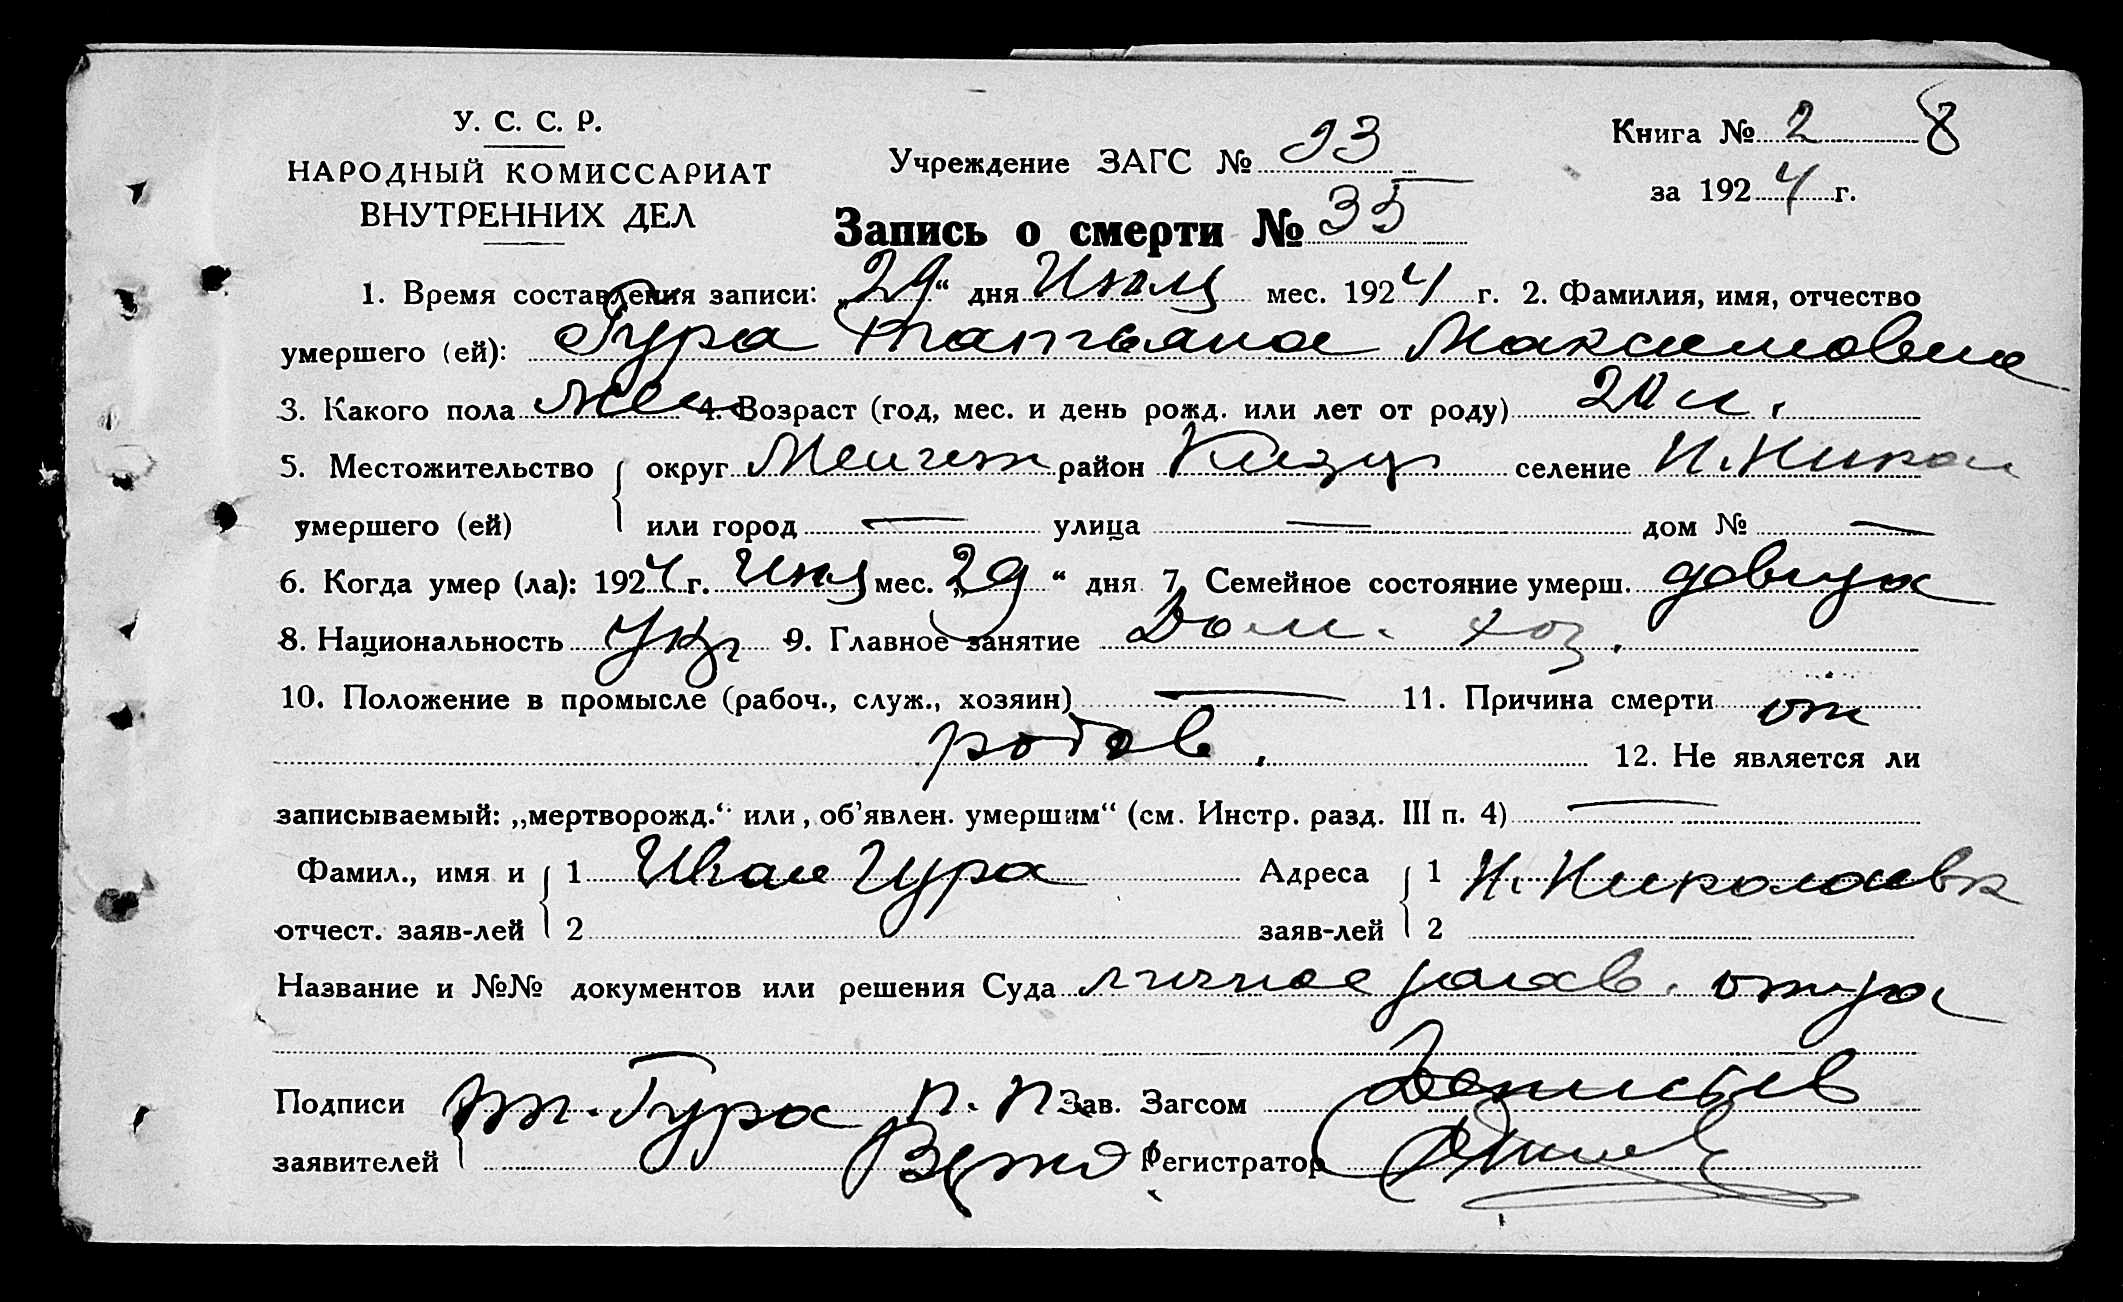 У. С. С. Р.
НАРОДНЫЙ КОМИССАРИАТ
ВНУТРЕННИХ ДЕЛ
Учреждение ЗАГС № 93
Книга № 2 8
за 1924 г.
Запись о смерти № 35
1. Время составления записи: „29“ дня мес. 1924 г. 2. Фамилия, имя, отчество
умершего (ей): Гура Татьяна Максимовна
3. Какого пола жен 4. Возраст (год, мес. и день рожд. или лет от роду)
5. Местожительство округ район селение Н. Никол
умершего (ей) или город — улица — дом № —
6. Когда умер (ла): 1924 г. мес. „29“ дня 7. Семейное состояние умерш.
8. Национальность Укр 9. Главное занятие Дом. хоз.
10. Положение в промысле (рабоч., служ., хозяин) — 11. Причина смерти от
родов. 12. Не является ли
записываемый: „мертворожд.“ или „об’явлен. умершим“ (см. Инстр. разд. III п. 4) —
Фамил., имя и 1 Иван Гура Адреса 1 Н. Николаевка
отчест. заяв-лей 2 заяв-лей 2
Название и №№ документов или решения Суда личное заяв. отца
Подписи Гура Зав. Загсом
заявителей Регистратор